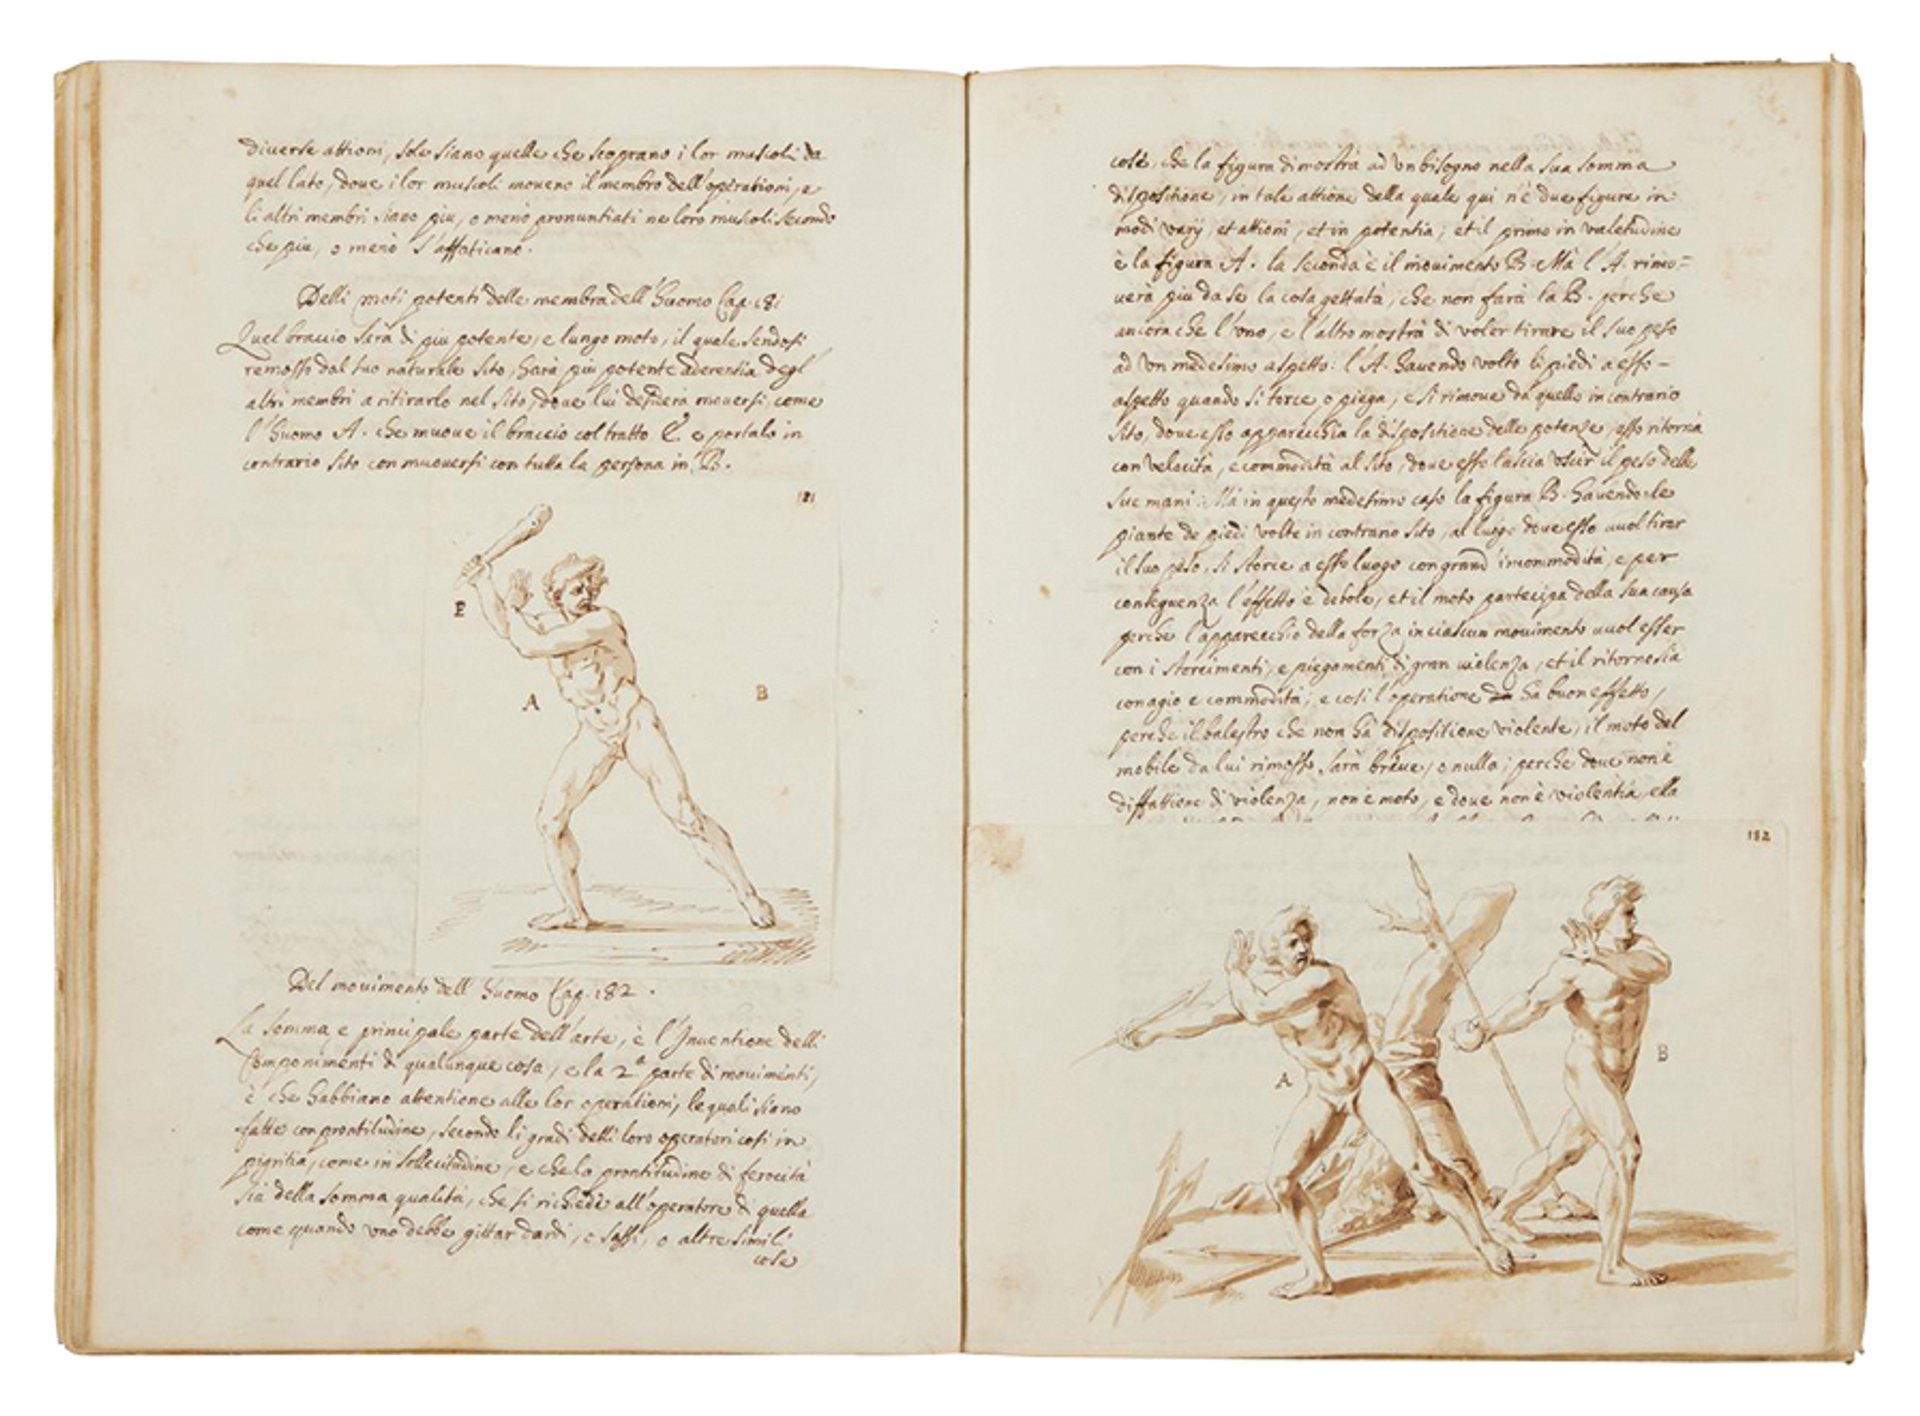 diuerse attioni, sole siano quelle che scoprano i lor muscoli da
quel lato, doue i lor muscoli moueno il membro dell'operationi, e
li altri membri siano piu, o meno pronuntiati ne loro muscoli secondo
che piu, o meno s'affaticano.
Delli moti potenti delle membra dell'huomo Cap. 181
Quel braccio sera di piu potente, e lungo moto, il quale sendosi
remosso dal suo naturale sito, hara piu potente aderentia degl'
altri membri a ritirarlo nel sito, doue lui desidera mouersi, come
l'huomo A. che muoue il braccio col tratto E. e portalo in
contrario sito con muouersi con tutta la persona in B.
181
E
A
B
Del mouimento dell'huomo Cap. 182.
La somma, e principale parte dell'arte, è l'Inuentione delli
Componimenti di qualunque cosa, e la 2ª parte di mouimenti,
è che habbiano attentione alle lor operationi, le quali siano
fatte con prontitudine, secondo li gradi delli loro operatori cosi in
pigritia, come in sollecitudine, e che la prontitudine di ferocità
sia della somma qualità, che si richiede all'operatore di quella
come quando uno debbe gittar dardi, o sassi, o altre simili
cose
cose. che la figura dimostra ad un bisogno nella sua somma
dispositione, in tale attione della quale qui n'è due figure in
modi varij, et attioni, et in potentia; et il primo in valetudine
è la figura A. la seconda è il mouimento B. Mà l'A. rimo=
uerà piu da se la cosa gettata, che non farà la B. perche
ancora che l'uno, e l'altro mostra di voler tirare il suo peso
ad un medesimo aspetto: l'A. hauendo volto li piedi a esso-
aspetto quando si torce, o piega, e si rimoue da quello in contrario
sito, doue esso apparecchia la dispositione delle potenze, esso ritorna
con velocità, e commodità al sito, doue esso lascia uscir il peso delle
sue mani. Mà in questo medesimo caso la figura B. hauendo le
piante de piedi volte in contrario sito, al luogo doue esso uuol tirar
il suo peso, si storce a esso luogo con grand'incommodità, e per
conseguenza l'effetto è debole, et il moto partecipa della sua causa
perche l'apparecchio della forza in ciascun mouimento uuol esser
con i storcimenti, e piegamenti di gran uiolenza, et il ritorno sia
con agio e commodità; e cosi l'operatione ha buon effetto,
perche il balestro che non ha dispositione violente, il moto del
mobile da lui rimosso sarà breue, o nulla; perche doue non è
disfattione di violenza, non è moto, e doue non è violentia, ella
182
A
B